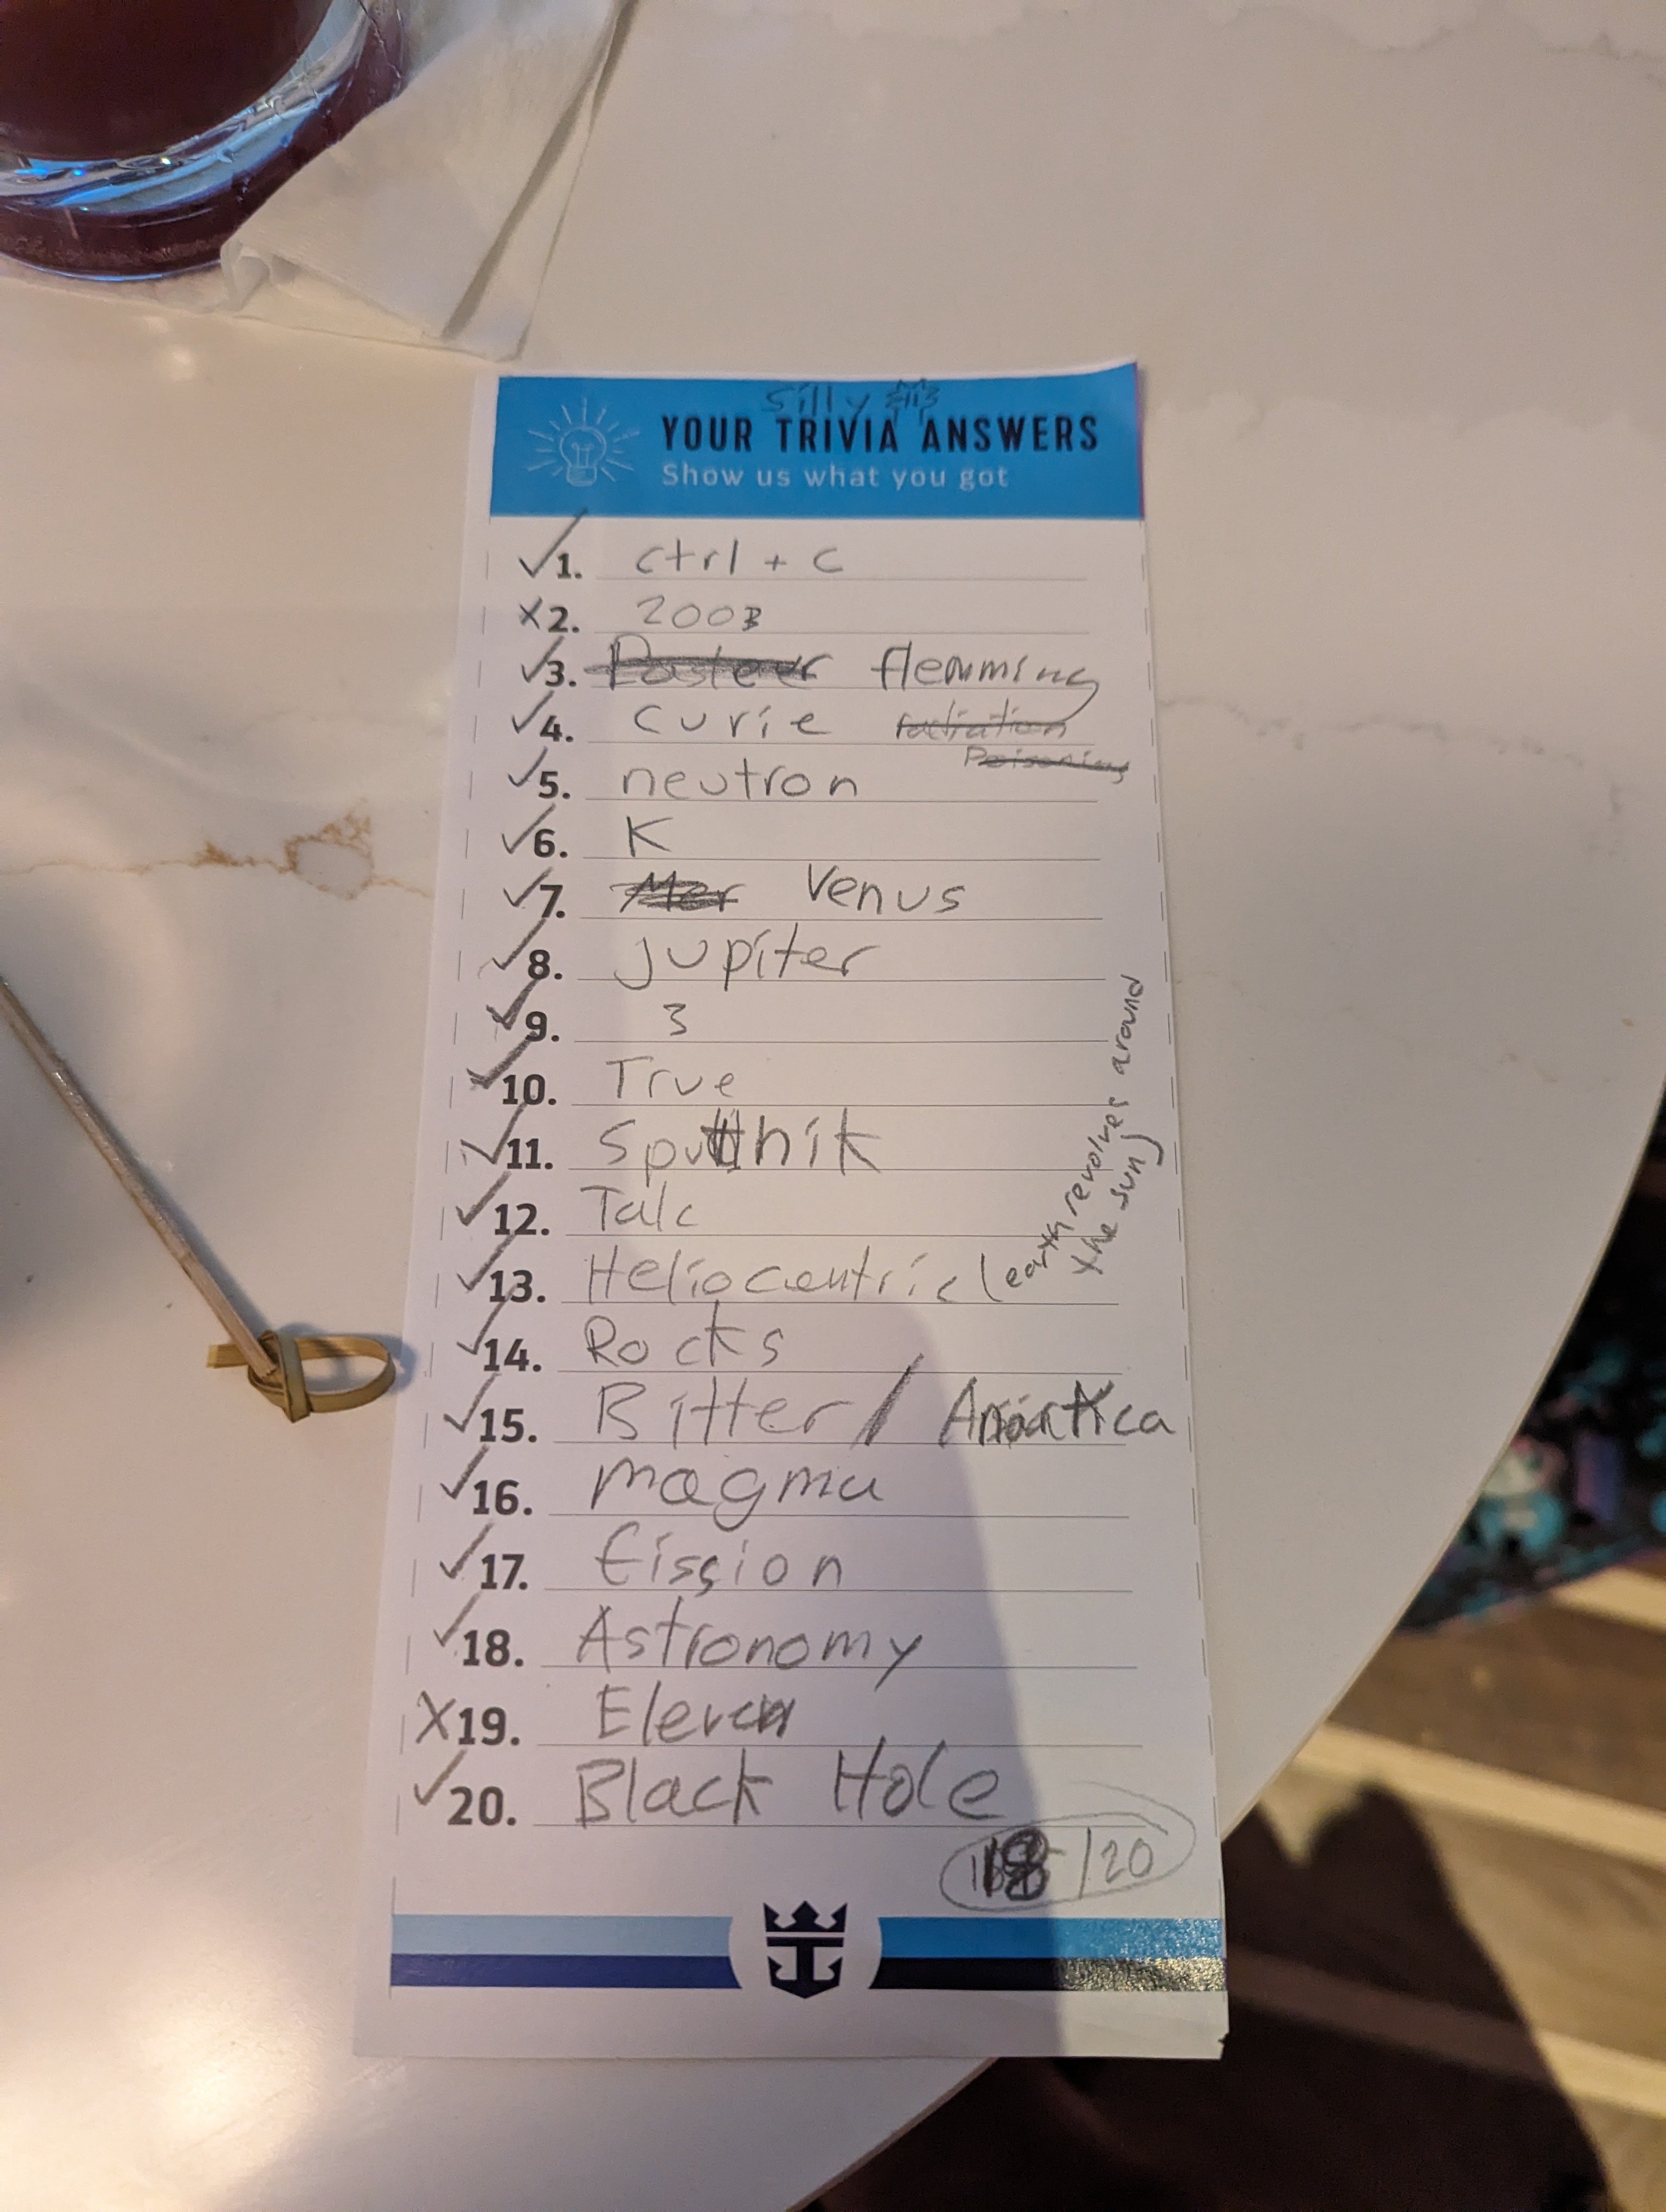 Silly
YOUR TRIVIA ANSWERS
Show us what you got
1. ctrl + c
2. 2003
3. Pasteur flemming
4. Curie radiation
Poisoning
5. neutron
6. K
7. Mer Venus
8. Jupiter
9. 3
10. True
11. Sputnik
12. Talc
13. Heliocentric (earth revolves around
the sun)
14. Rocks
15. Bitter / Anartica
16. magma
17. fission
18. Astronomy
19. Eleven
20. Black Hole
18 /20